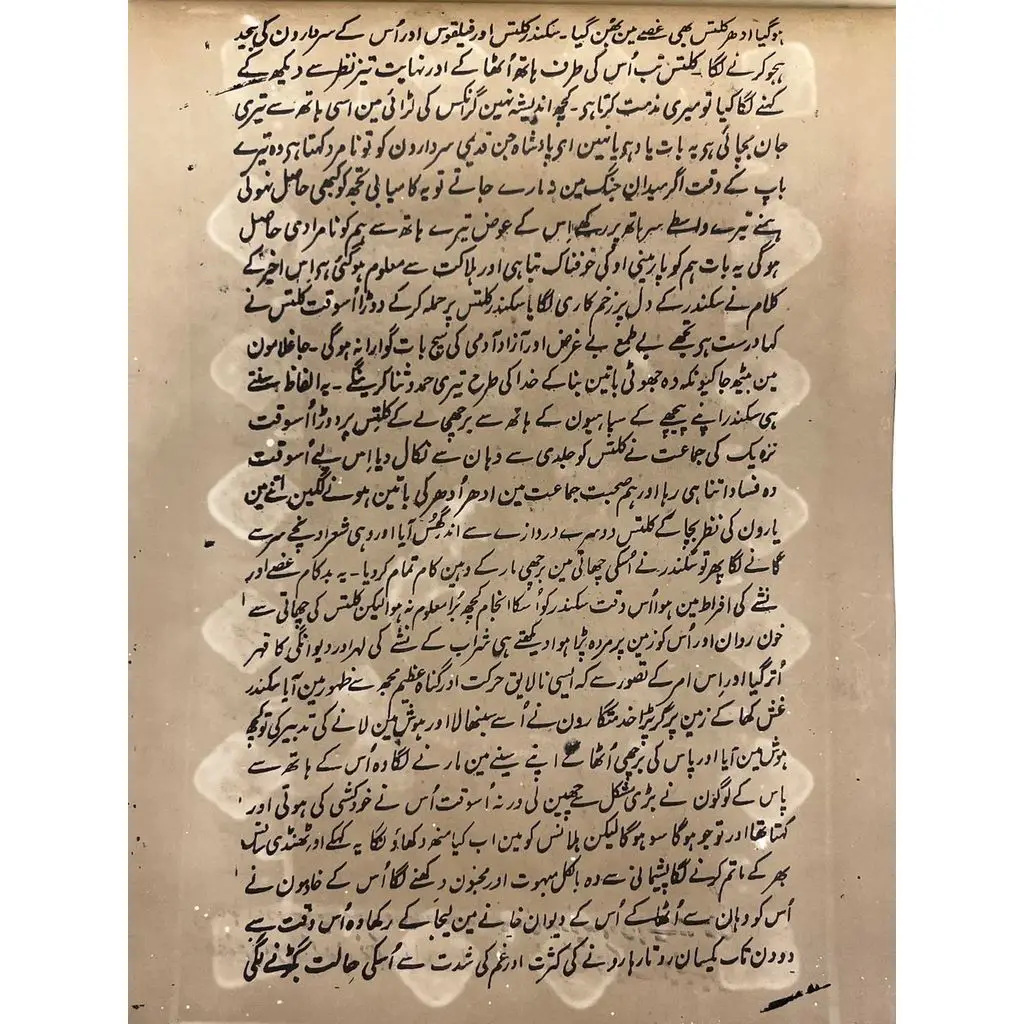 ہوگیا ادھر کلتس بھی غصے مین بھُن گیا۔ سکندر کلتس اور فیلقوس اور اُس کے سردارون کی بیحد
ہجو کرنے لگا۔ کلتس تب اُس کی طرف ہاتھ اُٹھا کے اور نہایت تیز نظر سے دیکھ کے
کہنے لگا کیا تو میری مذمت کرتا ہی۔ کچھ اندیشہ نہین گرانکس کی لڑائی مین اسی ہاتھ سے تیری
جان بچائی ہی یہ بات یاد ہی یا نہین اے پادشاہ جن قدیمی سردارون کو تو نامرد کہتا ہی وہ تیرے
باپ کے وقت اگر میدان جنگ مین نہ مارے جاتے تو یہ کامیابی تجھ کو کبھی حاصل نہوتی
ہمنے تیرے واسطے سر ہاتھ پر رکھے اِس کے عوض تیرے ہاتھ سے ہم کو نامرادی حاصل
ہوگی یہ بات ہم کو پارمینی او کی خوفناک تباہی اور ہلاکت سے معلوم ہوگئی ہی اس اخیر کے
کلام نے سکندر کے دل پر زخم کاری لگایا سکندر کلتس پر حملہ کر کے دوڑا اُسوقت کلتس نے
کہا درست ہی تجھے بے طمع بے غرض اور آزاد آدمی کی سچ بات گوارا نہ ہوگی۔ جا غلامون
مین بیٹھ جا کیونکہ وہ جھوٹی باتین بنا کے خدا کی طرح تیری حمد و ثنا کرینگے۔ یہ الفاظ سنتے
ہی سکندر اپنے پیچھے کے سپاہیون کے ہاتھ سے برچھی لے کے کلتس پر دوڑا اُسوقت
نزدیک کی جماعت نے کلتس کو جلدی سے وہان سے نکال دیا اِس لیے اُسوقت
وہ فساد اتنا ہی رہا اور ہم صحبت جماعت مین ادھر اُدھر کی باتین ہونے لگین اتنے مین
یارون کی نظر بچا کے کلتس دوسرے دروازے سے اندر گھُس آیا اور وہی شعر اونچے سر سے
گانے لگا پھر تو سکندر نے اُسکی چھاتی مین برچھی مار کے وہین کام تمام کردیا۔ یہ بد کام غصے اور
نشے کی افراط مین ہوا اُس وقت سکندر کو اُسکا انجام کچھ بُرا معلوم نہ ہوا لیکن کلتس کی چھاتی سے
خون روان اور اُس کو زمین پر مردہ پڑا ہوا دیکھتے ہی شراب کے نشے کی لہر اور دیوانگی کا قہر
اُتر گیا اور اِس امر کے تصور سے کہ ایسی نالایق حرکت اور گناہ عظیم مجھ سے ظہور مین آیا سکندر
غش کھا کے زمین پر گر پڑا خدمتگارون نے اُسے سنبھالا اور ہوش مین لانے کی تدبیر کی تو کچھ
ہوش مین آیا اور پاس کی برچھی اُٹھا کے اپنے سینے مین مارنے لگا وہ اُس کے ہاتھ سے
پاس کے لوگون نے بڑی مشکل سے چھین لی ورنہ اُسوقت اُس نے خودکشی کی ہوتی اور
کہتا تھا اور تو جو ہوگا سو ہوگا لیکن ہلانس کو مین اب کیا منھ دکھاؤنگا یہ کہکے اور ٹھنڈی سانس
بھر کے ماتم کرنے لگا پشیمانی سے وہ بالکل مبہوت اور مجنون دکھنے لگا اُس کے خادمون نے
اُس کو وہان سے اُٹھا کے اُس کے دیوان خانے مین لیجا کے رکھا وہ اُس وقت سے
دو دن تک یکسان روتا رہا رونے کی کثرت اور غم کی شدت سے اُسکی حالت بگڑنے لگی